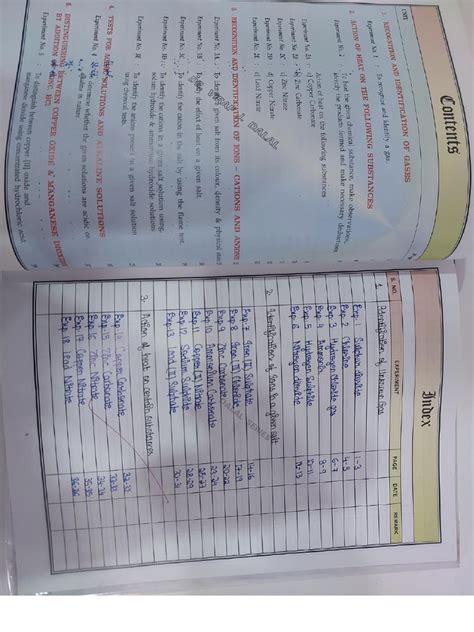 Contents
UNIT
1. RECOGNITION AND IDENTIFICATION OF GASES
Experiment No. 1 To recognise and identify a gas.
2. ACTION OF HEAT ON THE FOLLOWING SUBSTANCES
Experiment No. 2 To heat the given chemical substance, make observations,
identify the products formed and make necessary deductions
Action of heat in the following substances
Experiment No. 21 a) Copper Carbonate
b) Zinc Carbonate
c) Zinc Nitrate
d) Copper Nitrate
e) Lead Nitrate
3. RECOGNITION AND IDENTIFICATION OF IONS – CATIONS AND ANIONS
Experiment No. 3A To identify the given salt from its colour, density & physical state
Experiment No. 3B To study the effect of heat on a given salt.
Experiment No. 3C To identify the cation in the salt by using the flame test.
Experiment No. 3D To identify the cations in a given salt solution using
sodium hydroxide & ammonium hydroxide solutions
Experiment No. 3E To identify the anions present in a given salt solution
using chemical tests.
4. TESTS FOR ACIDIC SOLUTIONS AND ALKALINE SOLUTIONS
Experiment No. 4 To determine whether the given solutions are acidic or
alkaline in nature
5. DISTINGUISHING BETWEEN COPPER OXIDE & MANGANESE DIOXIDE
BY ADDITION OF CONC. HCl
Experiment No. 5 To distinguish between copper (II) oxide and
manganese dioxide using concentrated hydrochloric acid.
DALAL
Index
S. NO. EXPERIMENT PAGE DATE REMARK
1. Identification of Unknown Gas
Exp. 1 Sulphur dioxide 1-3
Exp. 2 Chlorine 4-5
Exp. 3 Hydrogen Chloride gas 6-7
Exp. 4 Ammonia 8-9
Exp. 5 Hydrogen Sulphide 10-11
Exp. 6 Nitrogen dioxide 12-13
2. Identification of Ions in a given salt
Exp. 7 Iron (II) Sulphate 14-16
Exp. 8 Iron (III) Chloride 17-19
Exp. 9 Zinc Carbonate 20-22
Exp. 10 Ammonium Carbonate
Exp. 11 Copper (II) Nitrate
Exp. 12 Sodium Sulphate 28-29
Exp. 13 Lead (II) Sulphate 30-31
3. Action of heat on certain substances
Exp. 14 Copper Carbonate 32-33
Exp. 15 Zinc Carbonate
Exp. 16 Zinc Nitrate
Exp. 17 Copper Nitrate
Exp. 18 Lead Nitrate